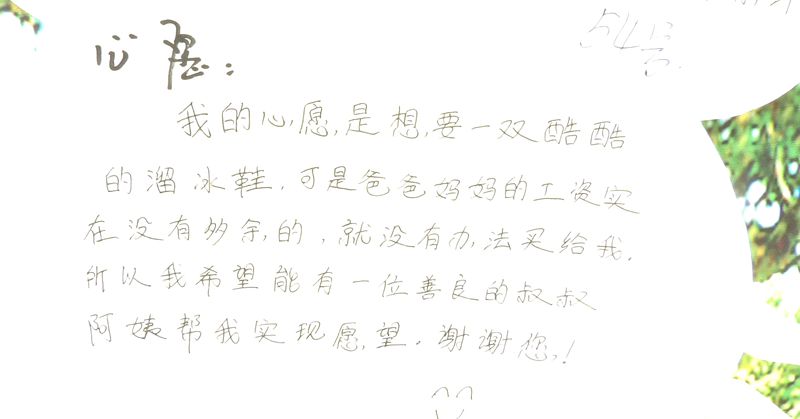 54号
心愿：
我的心愿,是想,要一双酷酷
的溜冰鞋,可是爸爸妈妈的工资实
在没有多余,的,就没有办,法买给我,
所以我希望能有一位善良的叔叔
阿姨帮我实现愿,望,谢谢您,!